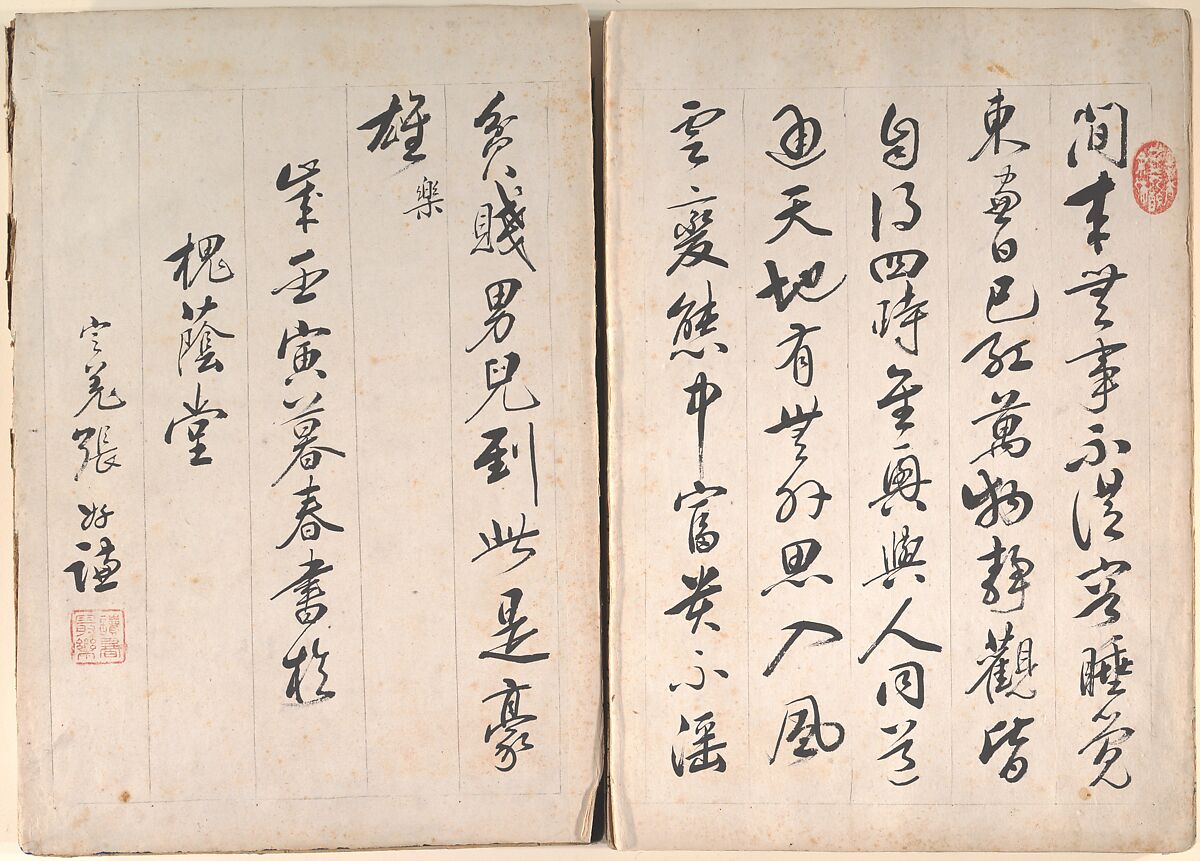 閒来無事不從容睡覺
東窗日已紅萬物靜觀皆
自得四時佳興與人同道
通天地有無外思入風
雲變態中富貴不淫
貧賤男兒到此是豪
雄
樂
歲壬寅暮春書於
槐蔭堂
定羌張好謙
讀書最樂